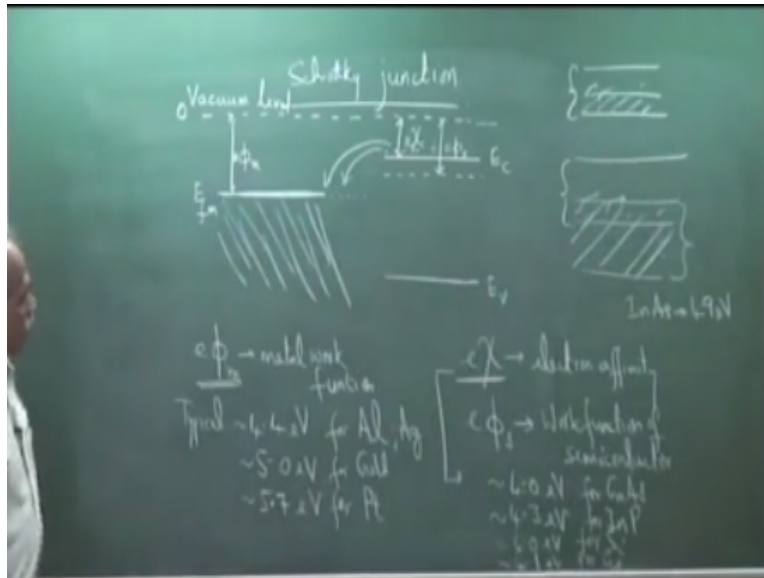 Schottky junction
0 Vacuum level
eϕm
eχ eϕs
Ec
Efm
Ev
InAs → 4.9 eV
eϕm → metal work
function
Typical ~4.4 eV for Al, Ag
~5.0 eV for Gold
~5.7 eV for Pt
eχ → electron affinit
eϕs → Work function of
semiconductor
~4.0 eV for GaAs
~4.3 eV for InP
~4.0 eV for Si